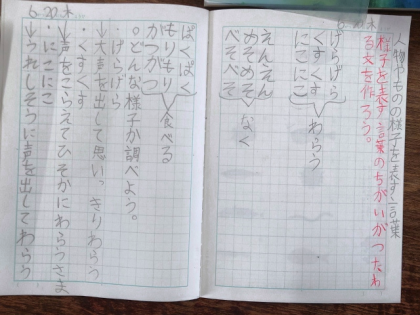 人物やものの様子を表す言葉
様子を表す言葉のちがいがつたわ
る文を作ろう。
げらげら
くすくす
にこにこ
わらう
えんえん
めそめそ
べそべそ
なく
ぱくぱく
もりもり
がつがつ
食べる
○どんな様子か調べよう。
・げらげら
↓大声を出して思いっきりわらう
・くすくす
↓声をこらえてひそかにわらうさま
・にこにこ
↓うれしそうに声を出してわらう